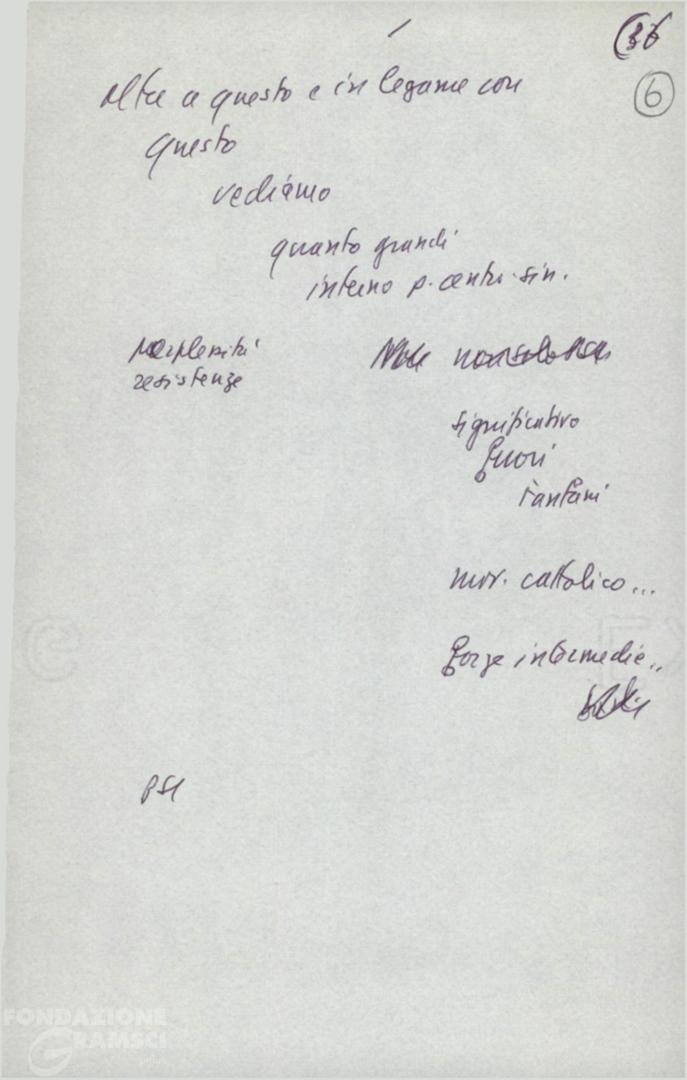 6
oltre a questo e in legame con
questo
vediamo
quanto grandi
interno p. centr. sin.
perplessità
resistenze
significativo
fuori
Fanfani
mov. cattolico...
forze intermedie..
PSI
FONDAZIONE
GRAMSCI